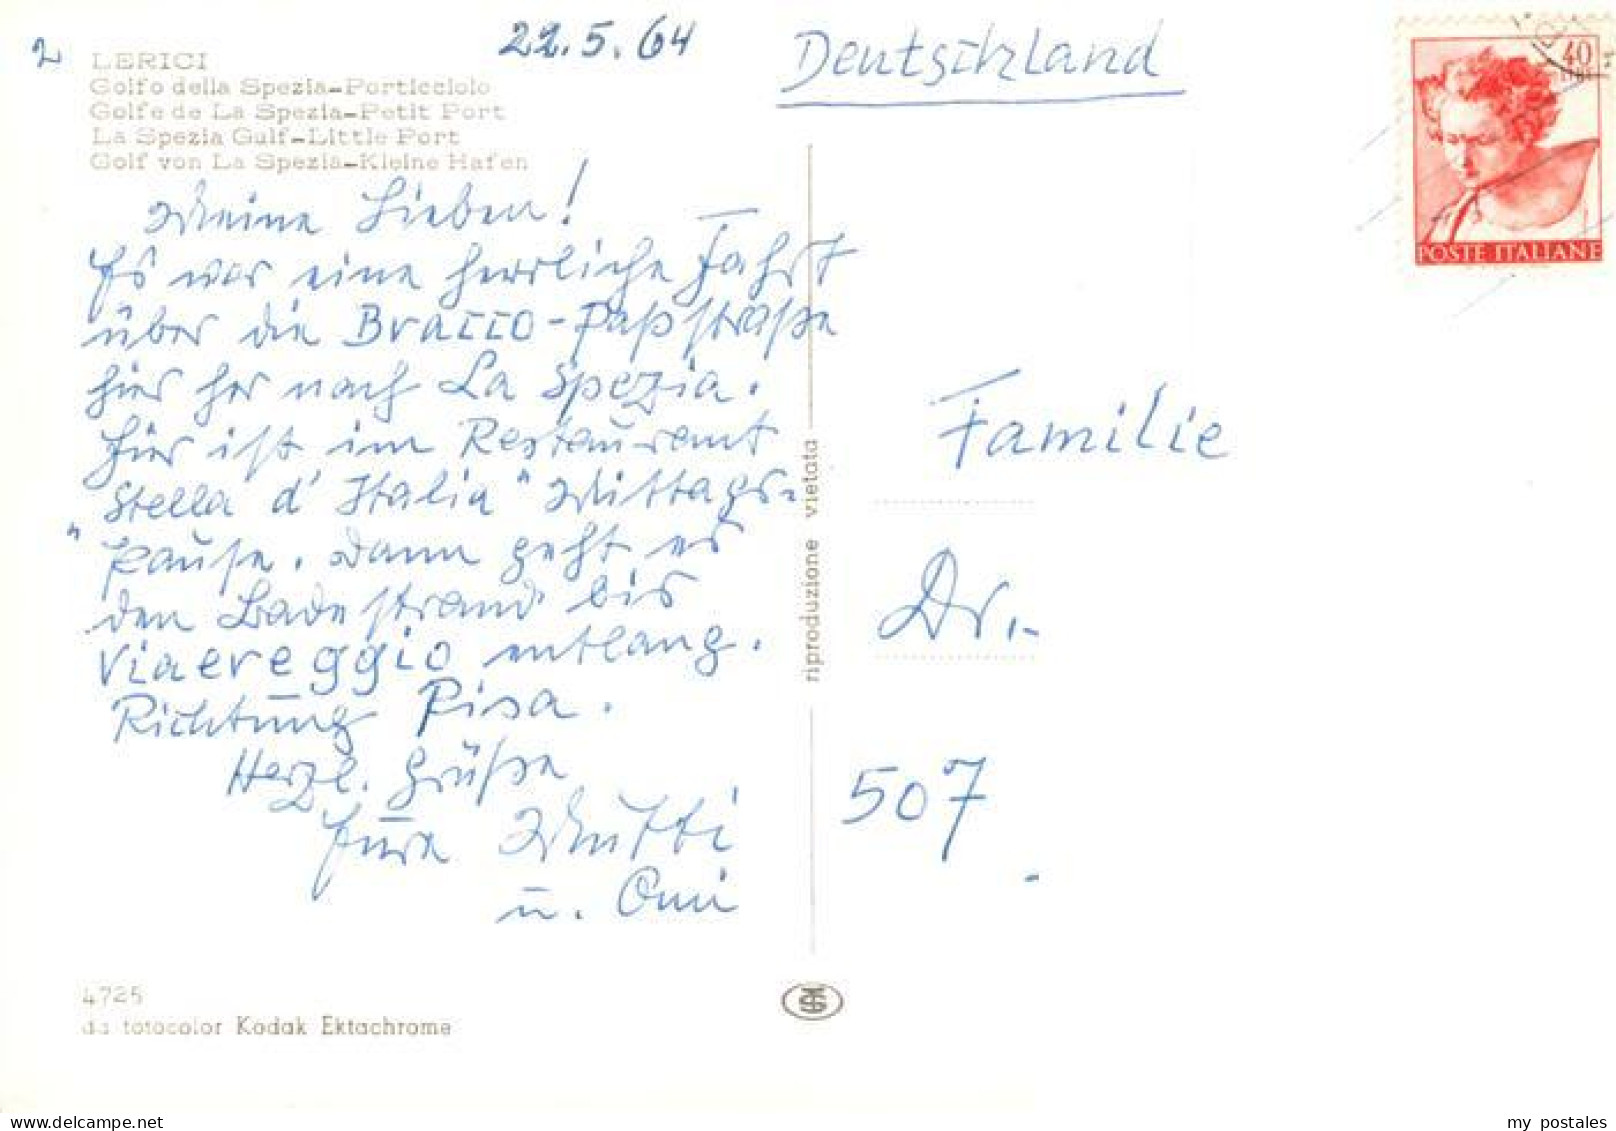 2
22.5.64
Deutschland
LERICI
Golfo della Spezia-Porticciolo
Golfe de La Spezia-Petit Port
La Spezia Gulf-Little Port
Golf von La Spezia-Kleine Hafen
Meine Lieben!
Es war eine herrliche Fahrt
über die Bracco-Paßstraße
hier her nach La Spezia.
Hier ist im Restaurant
"Stella d'Italia" Mittags-
pause. Dann geht es
den Badestrand bis
Viaereggio entlang.
Richtung Pisa.
Herzl. Grüße
Eure Mutti
u. Omi
4725
da fotocolor Kodak Ektachrome
riproduzione vietata
40
POSTE ITALIANE
Familie
Dr.
507
my postales
www.delcampe.net